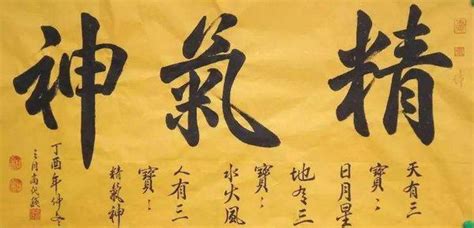 精氣神
天有三
寶〻
日月星
地有三
寶〻
水火風
人有三
寶〻
精氣神
丁酉年仲冬